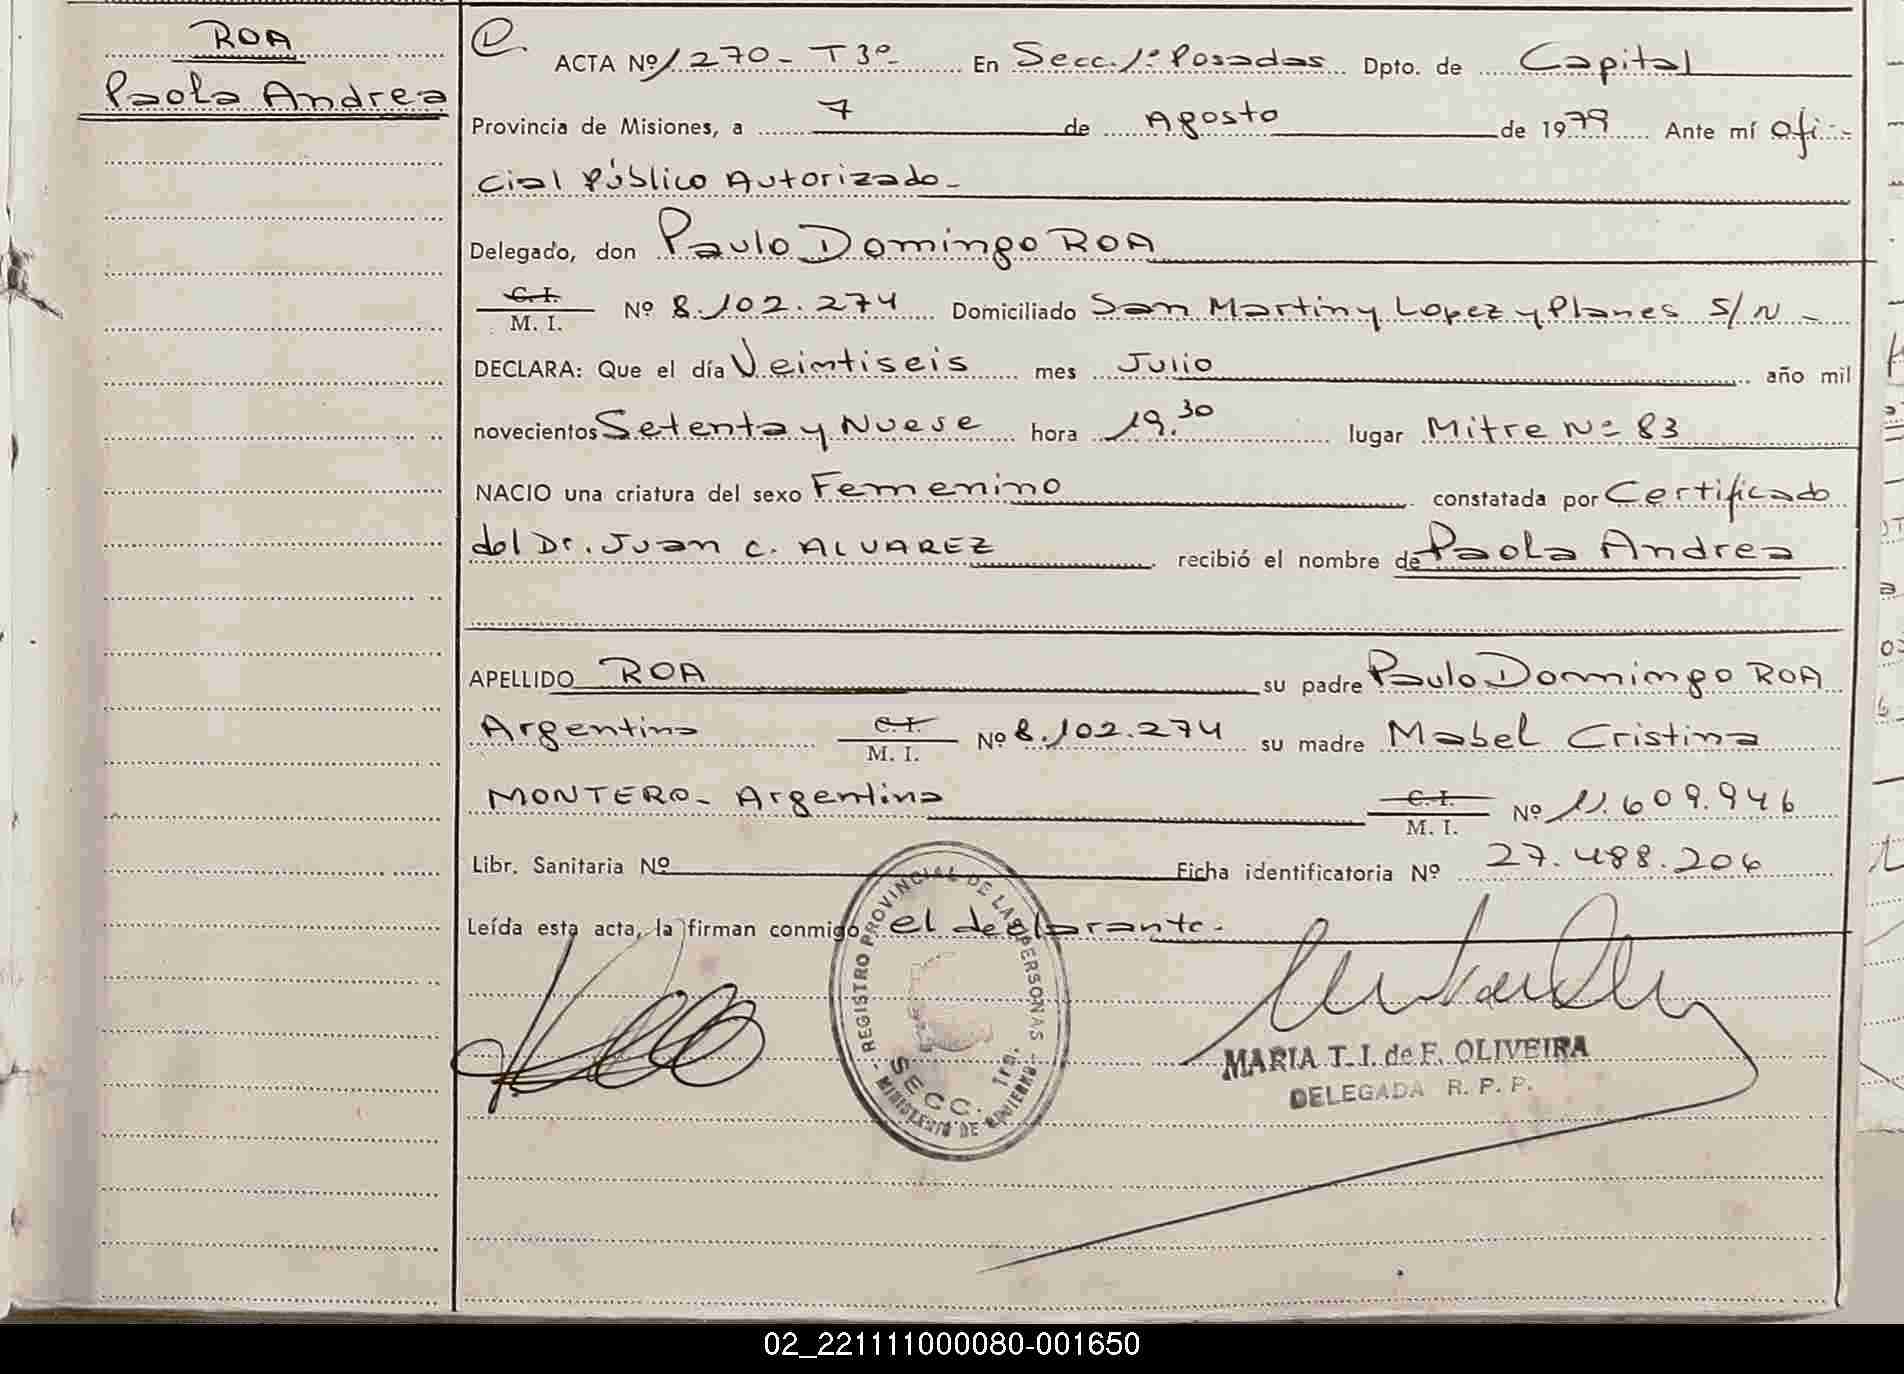 ROA
Paola Andrea
ACTA Nº 1270 - T3º - En Secc. 1º Posadas Dpto. de Capital
Provincia de Misiones, a 7 de Agosto de 1979 Ante mí ofi-
cial Público Autorizado -
Delegado, don Paulo Domingo ROA
C.I. / M. I. Nº 8.102.274 Domiciliado San Martin y Lopez y Planes S/N -
DECLARA: Que el día Veintiseis mes Julio año mil
novecientos Setenta y Nueve hora 19.30 lugar Mitre Nº 83
NACIO una criatura del sexo Femenino constatada por Certificado
del Dr. Juan C. ALVAREZ recibió el nombre de Paola Andrea
APELLIDO ROA su padre Paulo Domingo ROA
Argentino C.I. / M. I. Nº 8.102.274 su madre Mabel Cristina
MONTERO - Argentina C.I. / M. I. Nº 11.609.946
Libr. Sanitaria Nº Ficha identificatoria Nº 27.488.206
Leída esta acta, la firman conmigo el declarante.
REGISTRO PROVINCIAL DE LAS PERSONAS - MINISTERIO DE GOBIERNO -
SECC. 1ra.
MARIA T. I. de F. OLIVEIRA
DELEGADA R. P. P.
02_221111000080-001650